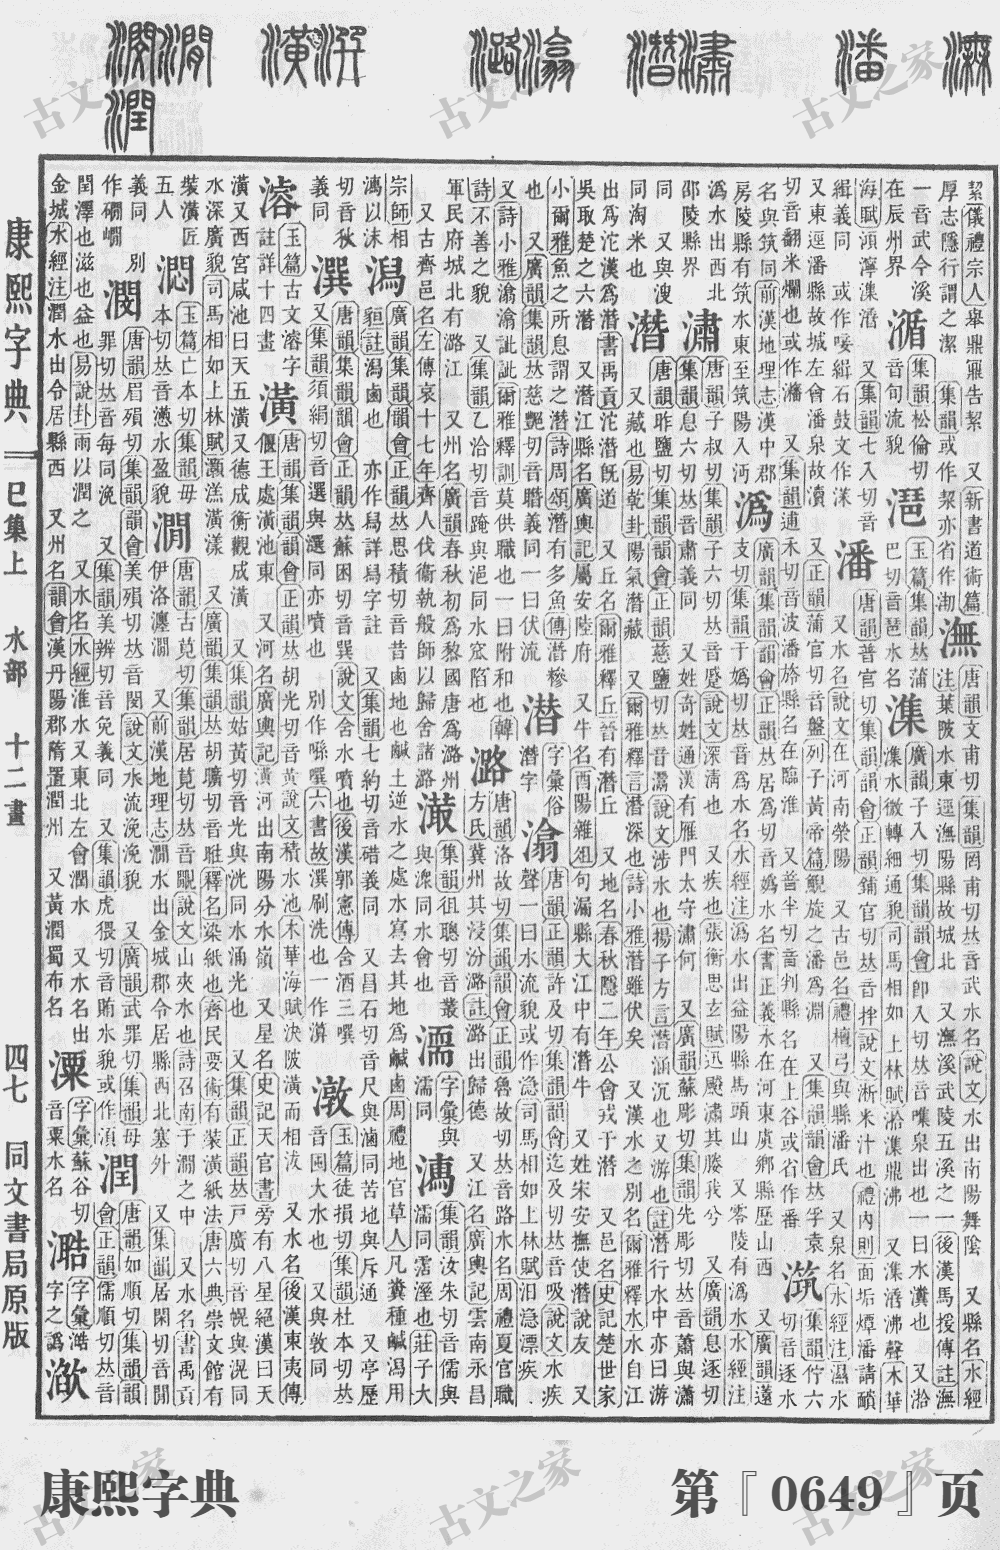 絜儀禮宗人舉鼎鼏告絜 又新書道術篇
厚志隱行謂之潔 集韻或作絜亦省作㓗
潕
唐韻文甫切集韻罔甫切𠀤音武水名說文水出南陽舞隂 又縣名水經
注葉陂水東逕潕陽縣故城北 又潕溪武陵五溪之一後漢馬援傳註潕
一音武今溪
在辰州界
集韻松倫切
音旬流貌
潖
玉篇集韻𠀤蒲
巴切音琶水名
潗
廣韻子入切集韻韻會卽入切𠀤音喋泉出也一曰水瀵也 又湁
潗水微轉細涌貌司馬相如上林賦湁潗鼎沸 又潗湁沸聲木華
海賦澒濘潗湁 又集韻七入切音
緝義同 或作㗱緝石鼓文作
潘
唐韻普官切集韻韻會正韻鋪官切𠀤音拌說文淅米汁也禮內則面垢燂潘請靧
又水名說文在河南滎陽 又古邑名禮檀弓與縣潘氏 又泉名水經注㶟水
又東逕潘縣故城左會潘泉故瀆 又正韻蒲官切音盤列子黃帝篇鯢旋之潘爲淵 又集韻韻會𠀤孚袁
切音翻米瀾也或作 又集韻逋禾切音波潘旍縣名在臨淮 又普半切音判縣名在上谷或省作番
集韻佇六
切音逐水
名與筑同前漢地理志漢中郡
房陵縣有筑水東至筑陽入沔
潙
廣韻集韻韻會正韻𠀤居爲切音嬀水名書正義水在河東虞鄕縣歷山西 又廣韻薳
支切集韻于嬀切𠀤音爲水名水經注潙水出益陽縣馬頭山 又零陵有潙水水經注
潙水出西北
邵陵縣界
潚
唐韻子叔切集韻子六切𠀤音蹙說文深淸也 又疾也張衡思玄賦迅飇潚其媵我兮 又廣韻息逐切
集韻息六切𠀤音肅義同 又姓奇姓通漢有雁門太守潚何 又廣韻蘇彫切集韻先彫切𠀤音蕭與瀟
同 又與溲
同淘米也
潛
唐韻昨鹽切集韻韻會正韻慈鹽切𠀤音灊說文涉水也揚子方言潛涵沉也又游也註潛行水中亦曰游
又藏也易乾卦陽氣潛藏 又爾雅釋言潛深也詩小雅潛雖伏矣 又漢水之別名爾雅釋水水自江
出爲沱漢爲潛書禹貢沱潛旣道 又丘名爾雅釋丘晉有潛丘 又地名春秋隱二年公會戎于潛 又邑名史記楚世家
吳取楚之六潛 又潛江縣名廣輿記屬安陸府 又牛名酉陽雜俎句漏縣大江中有潛牛 又姓宋安撫使潛說友 又
小爾雅魚之所息謂之潛詩周頌潛有多魚傳潛槮
也 又廣韻集韻𠀤慈豔切音義同一曰伏流
潜
字彙俗
潛字
潝
唐韻正韻許及切集韻韻會迄及切𠀤音吸說文水疾
聲一曰水流貌或作司馬相如上林賦汩潝漂疾
又詩小雅潝潝訿訿爾雅釋訓莫供職也一曰附和也韓
詩不善之貌 又集韻乙洽切音與浥同水窊陷也
潞
唐韻洛故切集韻韻會正韻魯故切𠀤音路水名周禮夏官職
方氏冀州其浸汾潞註潞出歸德 又江名廣輿記雲南永昌
軍民府城北有潞江 又州名廣韻春秋初爲黎國唐爲潞州
又古齊邑名左傳哀十七年齊人伐衞執般師以歸舍諸潞
集韻徂聰切音叢
與潨同水會也
字彙與
濡同
集韻汝朱切音儒與
濡同霑溼也莊子大
宗師相
濡以沫
潟
廣韻集韻韻會正韻𠀤思積切音昔鹵地也鹹土逆水之處水寫去其地爲鹹鹵周禮地官草人凡糞種鹹潟用
貆註潟鹵也 亦作舄詳舄字註 又集韻七約切音碏義同 又昌石切音尺與滷同苦地與斥通 又亭歷
切音狄
義同
潠
唐韻集韻韻會正韻𠀤蘇困切音巽說文含水噴也後漢郭憲傳含酒三潠
又集韻須絹切音選與選同亦噴也 別作噀 六書故潠刷洗也一作
潡
玉篇徒損切集韻杜本切𠀤
音囤大水也 又與敦同
濬
玉篇古文濬字
註詳十四畫
潢
唐韻集韻韻會正韻𠀤胡光切音黃說文積水池木華海賦決陂潢而相沷 又水名後漢東夷傳
偃王處潢池東 又河名廣輿記潢河出南陽分水嶺 又星名史記天官書旁有八星絕漢曰天
潢又西宮咸池曰天五潢又德成衡觀成潢 又集韻姑黃切音光與洸同水涌光也 又集韻正韻𠀤戸廣切音幌與滉同
水深廣貌司馬相如上林賦灝溔潢漾 又廣韻集韻𠀤胡曠切音釋名染紙也齊民要術有裝潢紙法唐六典崇文館有
裝潢匠
五人
玉篇亡本切集韻毋
本切𠀤音懣水盈貌
澗
唐韻古莧切集韻居莧切𠀤音覵說文山夾水也詩召南于澗之中 又水名書禹貢
伊洛瀍澗 又前漢地理志澗水出金城郡令居縣西北塞外 又集韻居閑切音閒
義同 別
作磵
潣
唐韻眉殞切集韻韻會美殞切𠀤音閔說文水流浼浼貌 又廣韻武罪切集韻母
罪切𠀤音每同浼 又集韻美辨切音免義同 又集韻虎猥切音賄水貌或作
潤
唐韻如順切集韻韻
會正韻儒順切𠀤音
閏澤也滋也益也易說卦雨以潤之 又水名水經淮水又東北左會潤水 又水名出
金城水經注潤水出令居縣西 又州名韻會漢丹陽郡隋置潤州 又黃潤蜀布名
字彙蘇谷切
音粟水名
字彙澔
字之譌
康熙字典 巳集上 水部 十二畫 四七 同文書局原版
康熙字典
第『0649』页
古文之家
古文之家
古文之家
古文之家
古文之家
古文之家